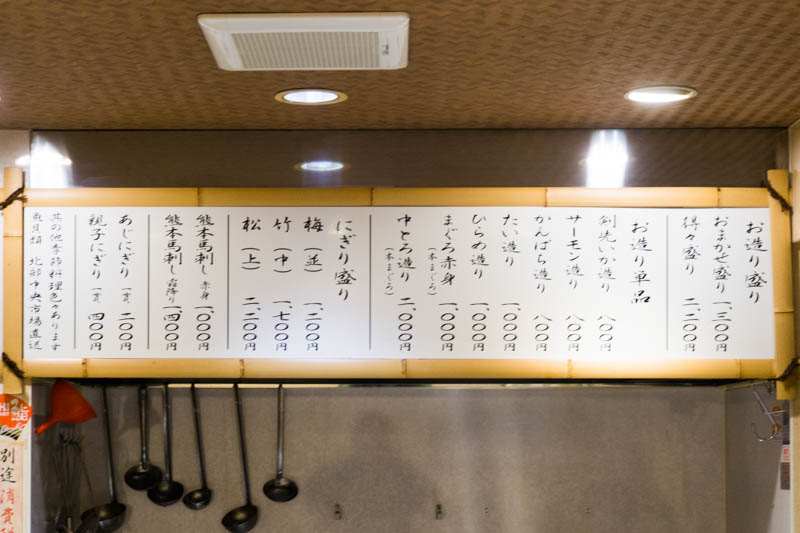 お造り盛り
おまかせ盛り 一、三〇〇円
得々盛り 二、二〇〇円
お造り単品
剣先いか造り 八〇〇円
サーモン造り 八〇〇円
かんぱち造り 八〇〇円
たい造り 一、〇〇〇円
ひらめ造り 一、〇〇〇円
まぐろ赤身 一、〇〇〇円
(本まぐろ)
中とろ造り 二、〇〇〇円
(本まぐろ)
にぎり盛り
梅(並) 一、二〇〇円
竹(中) 一、七〇〇円
松(上) 二、二〇〇円
熊本馬刺し 赤身 一、〇〇〇円
熊本馬刺し 霜降り 一、四〇〇円
あじにぎり 一貫 二〇〇円
親子にぎり 一貫 四〇〇円
其の他季節料理色々あります
魚貝類 北部中央市場直送
別途消費